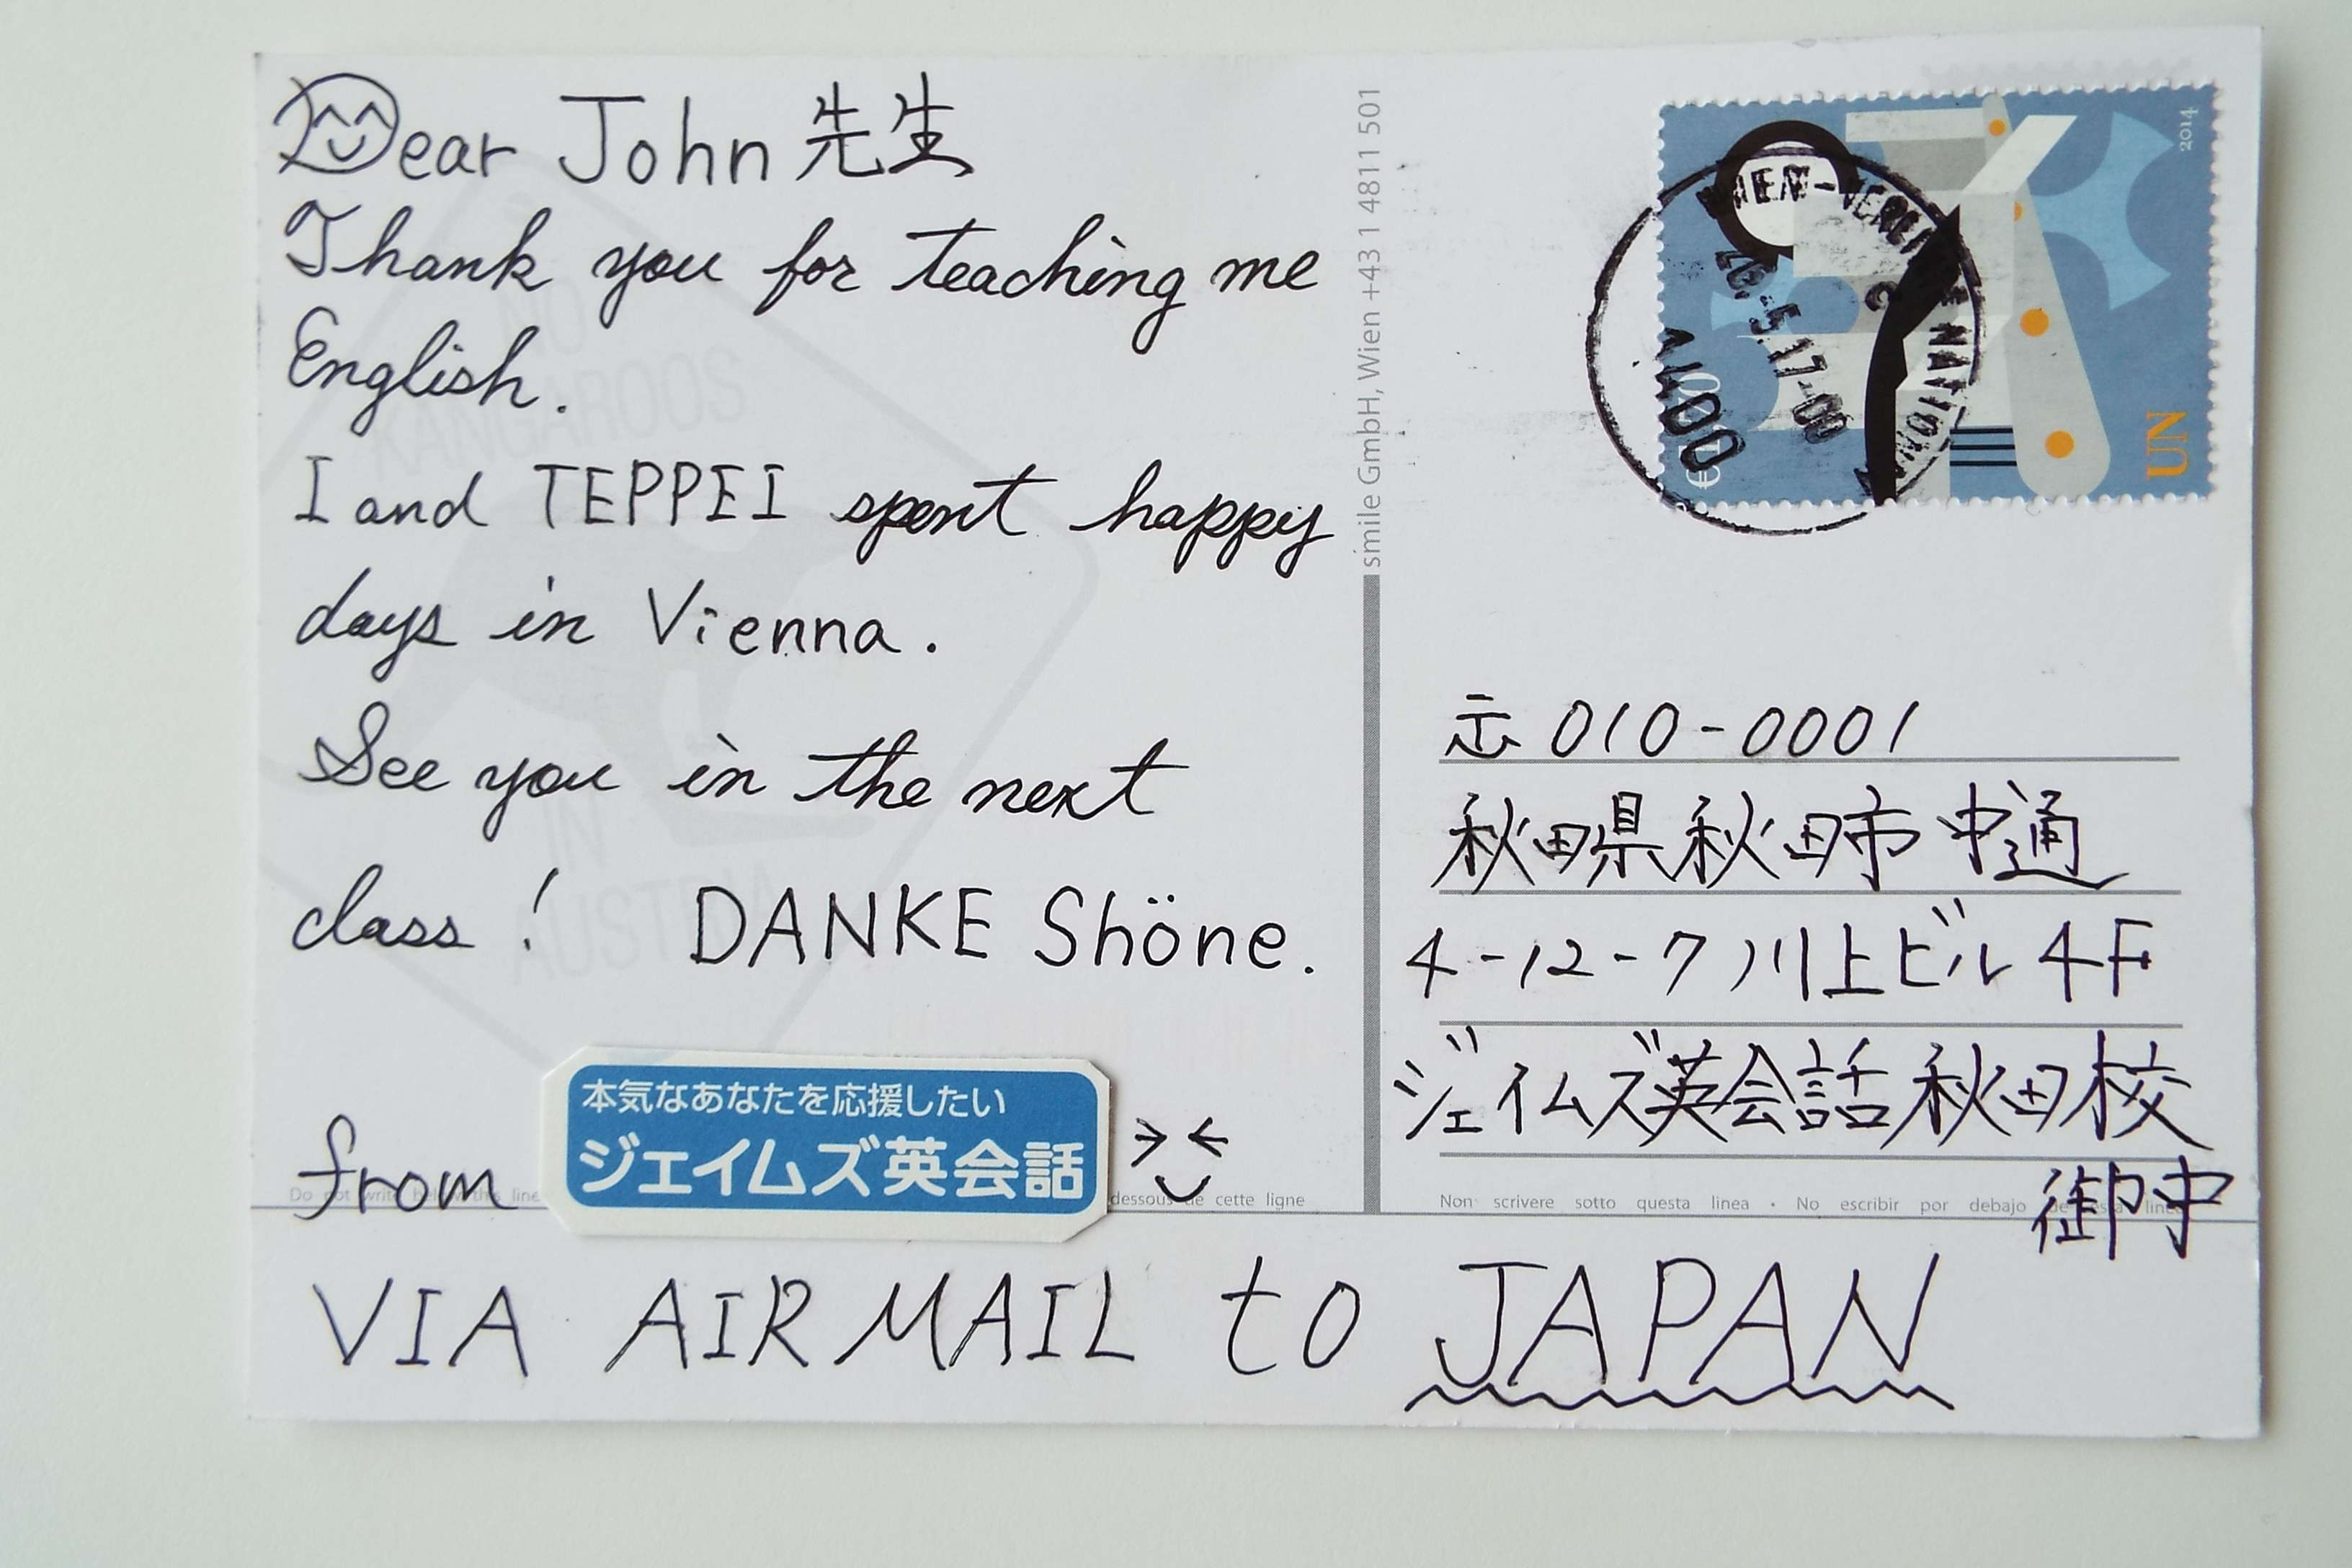 Dear John 先生
Thank you for teaching me
English.
I and TEPPEI spent happy
days in Vienna.
See you in the next
class! DANKE Shöne.
from
本気なあなたを応援したい
ジェイムズ英会話
Do not write below this line
dessous de cette ligne
VIA AIR MAIL to JAPAN
smile GmbH, Wien +43 1 4811 501
2014
UN
26.-5.17-00
1400
〒010-0001
秋田県秋田市中通
4-12-7 川上ビル 4F
ジェイムズ英会話 秋田校
御中
Non scrivere sotto questa linea • No escribir por debajo de esta linea
NO
KANGAROOS
IN
AUSTRIA